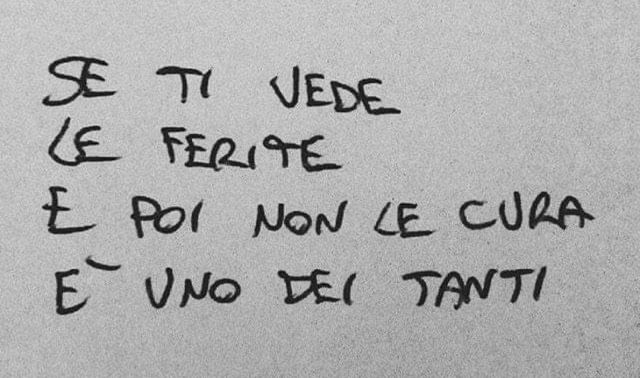 SE TI VEDE
LE FERITE
E POI NON LE CURA
E` UNO DEI TANTI